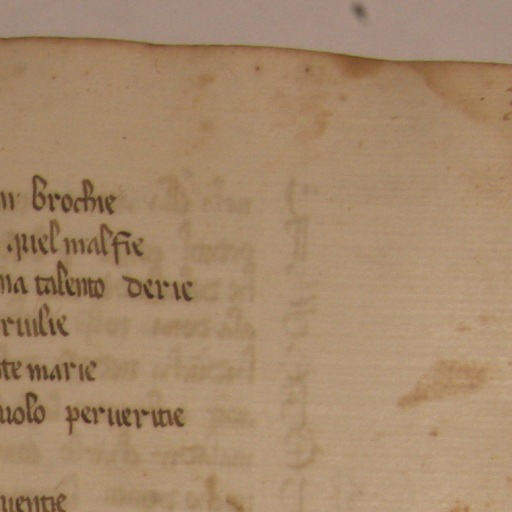 brochie
quel malfie
na talento derie
ruilie
te marie
uolo perueritie
uentie